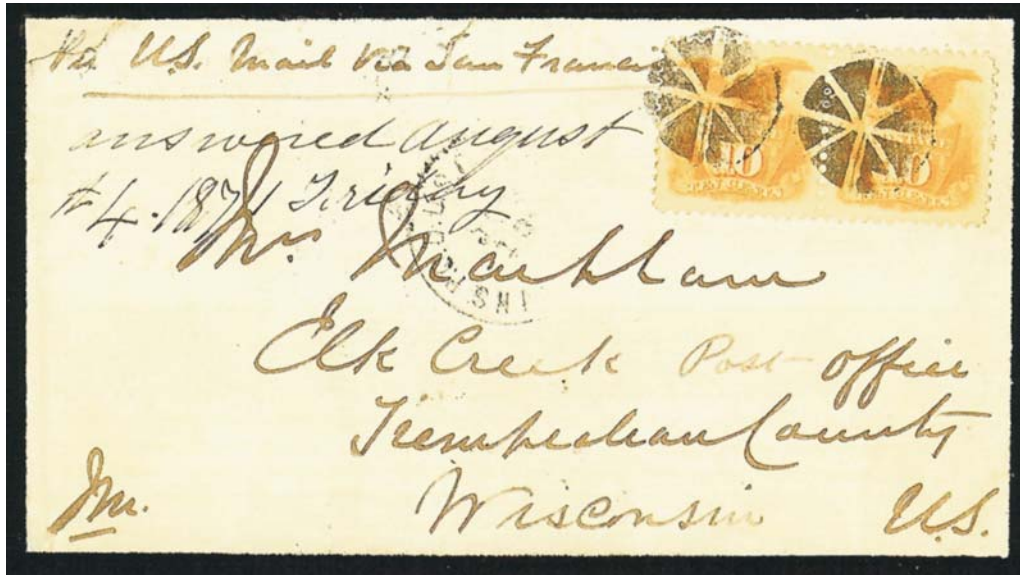 U.S. Mail via San Francis
answered august
# 4. 1871 Friday
Mrs. Markham
Elk Creek Post office
Trempealeau County
Wisconsin U.S.
10
10